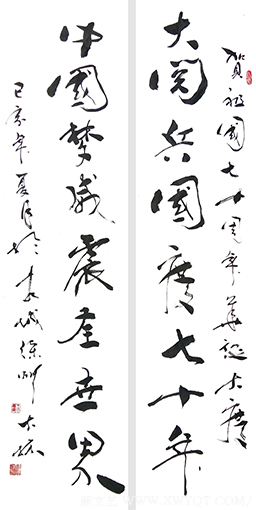 賀祖國七十周年華誕大慶
大閱兵國慶七十年
中國夢威震全世界
己亥年夏月於 城徐州